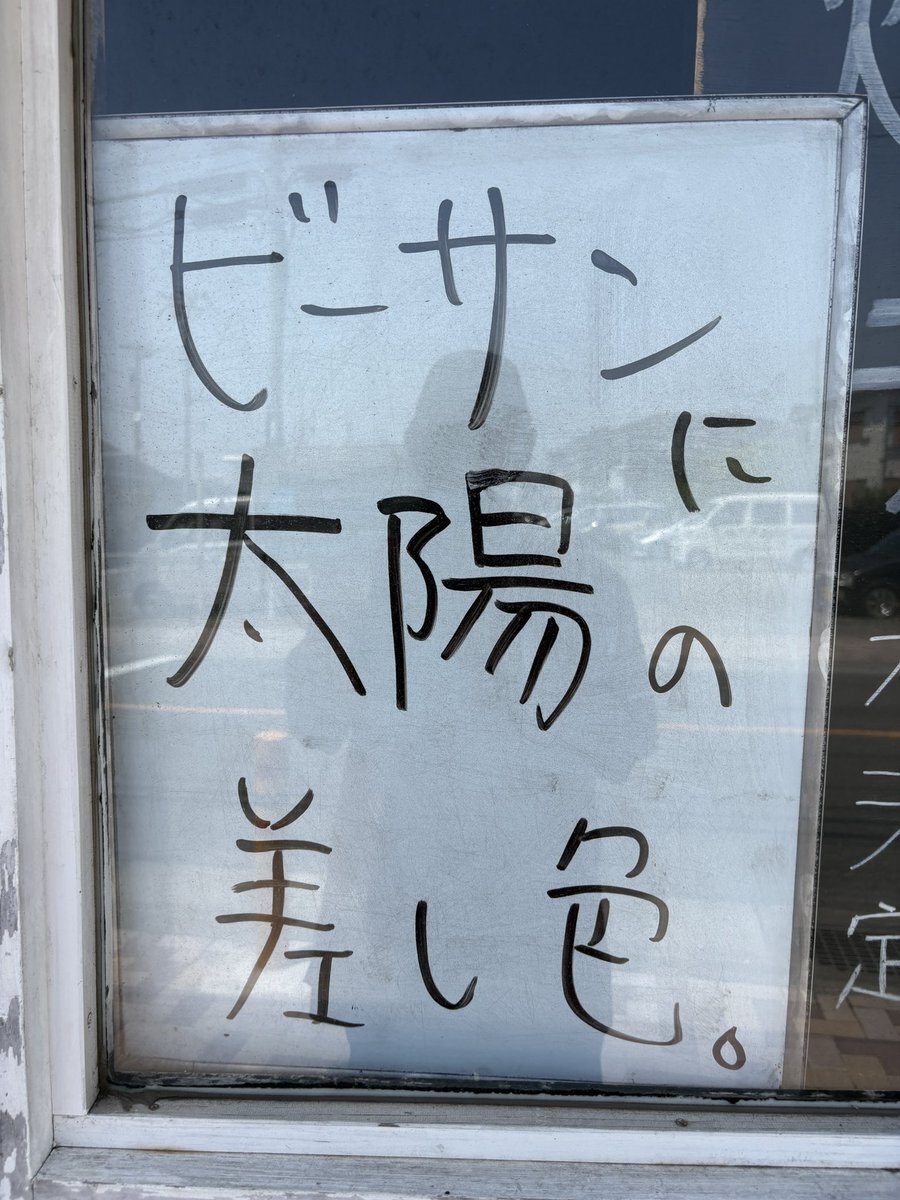 ビーサンに
太陽の
差し色。
定